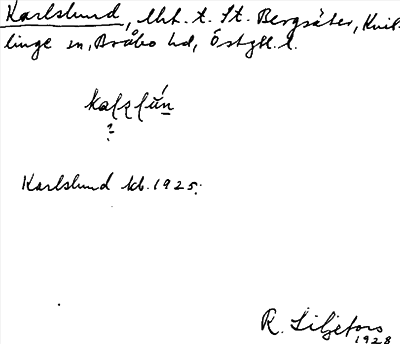 Karlslund, lht. t. St. Bergsäter, Kvil-
linge sn, Bråbo hd, Östgtl. l.
?
Karlslund kb. 1925.
R. Liljefors
1928